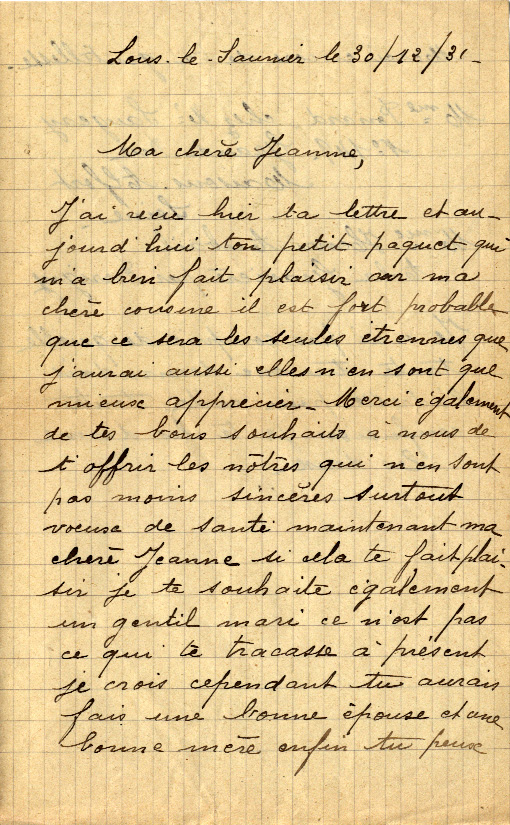 Lons-le-Saunier le 30/12/31-
Ma chère Jeanne,
J'ai recu hier ta lettre et au-
jourd'hui ton petit paquet qui
m'a bien fait plaisir car ma
chère cousine il est fort probable
que ce sera les seules étrennes que
j'aurai aussi elles n'en sont que
mieux apprécier - Merci également
de tes bons souhaits à nous de
t'offrir les nôtres qui n'en sont
pas moins sincères surtout
voeux de santé maintenant ma
chère Jeanne si cela te fait plai-
sir je te souhaite également
un gentil mari ce n'est pas
ce qui te tracasse à présent
je crois cependant tu aurais
fais une bonne épouse et une
bonne mère enfin tu peux